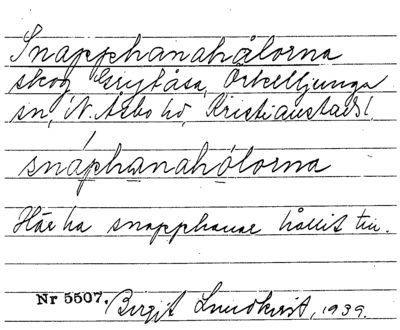 Snapphanahålorna
skog Grytåsa, Örkelljunga
sn, N. Åsbo hd, Kristianstads l.
snáphanahólorna
Här ha snapphanar hållit till.
Nr 5507. Birgit Lundkvist, 1939.